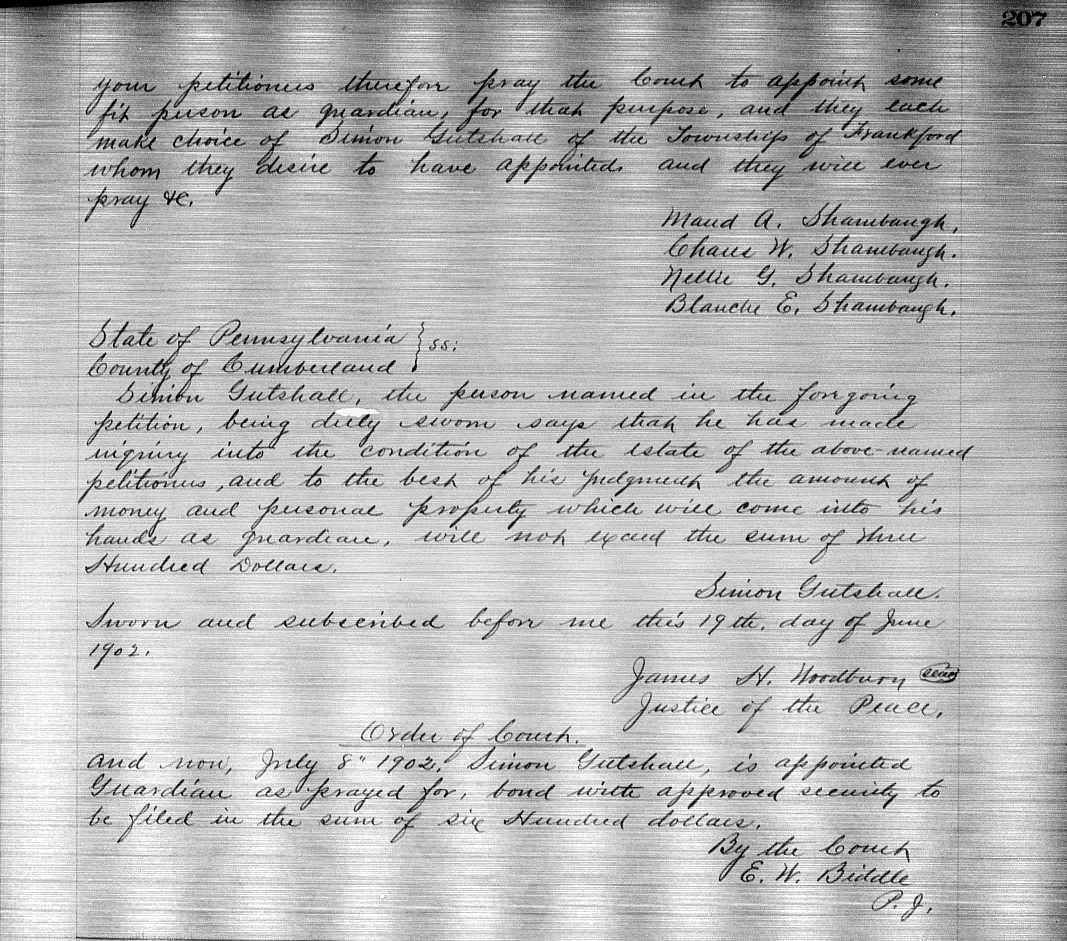 207
your petitioners therefore pray the Court to appoint some
fit person as guardian, for that purpose, and they each
make choice of Simon Gutshall of the Township of Frankford
whom they desire to have appointed. and they will ever
pray &c.
Maud A. Shambaugh.
Chars W. Shambaugh.
Nellie G. Shambaugh.
Blanche E. Shambaugh.
State of Pennsylvania } ss:
County of Cumberland
Simon Gutshall, the person named in the foregoing
petition, being duly sworn says that he has made
inquiry into the condition of the estate of the above-named
petitioners, and to the best of his judgment the amount of
money and personal property which will come into his
hands as guardian, will not exceed the sum of three
Hundred Dollars.
Simon Gutshall.
Sworn and subscribed before me this 19th. day of June
1902.
James H. Woodburn seal
Justice of the Peace.
Order of Court.
And now, July 8" 1902. Simon Gutshall, is appointed
Guardian as prayed for, bond with approved security to
be filed in the sum of six Hundred dollars.
By the Court
E. W. Biddle
P. J.